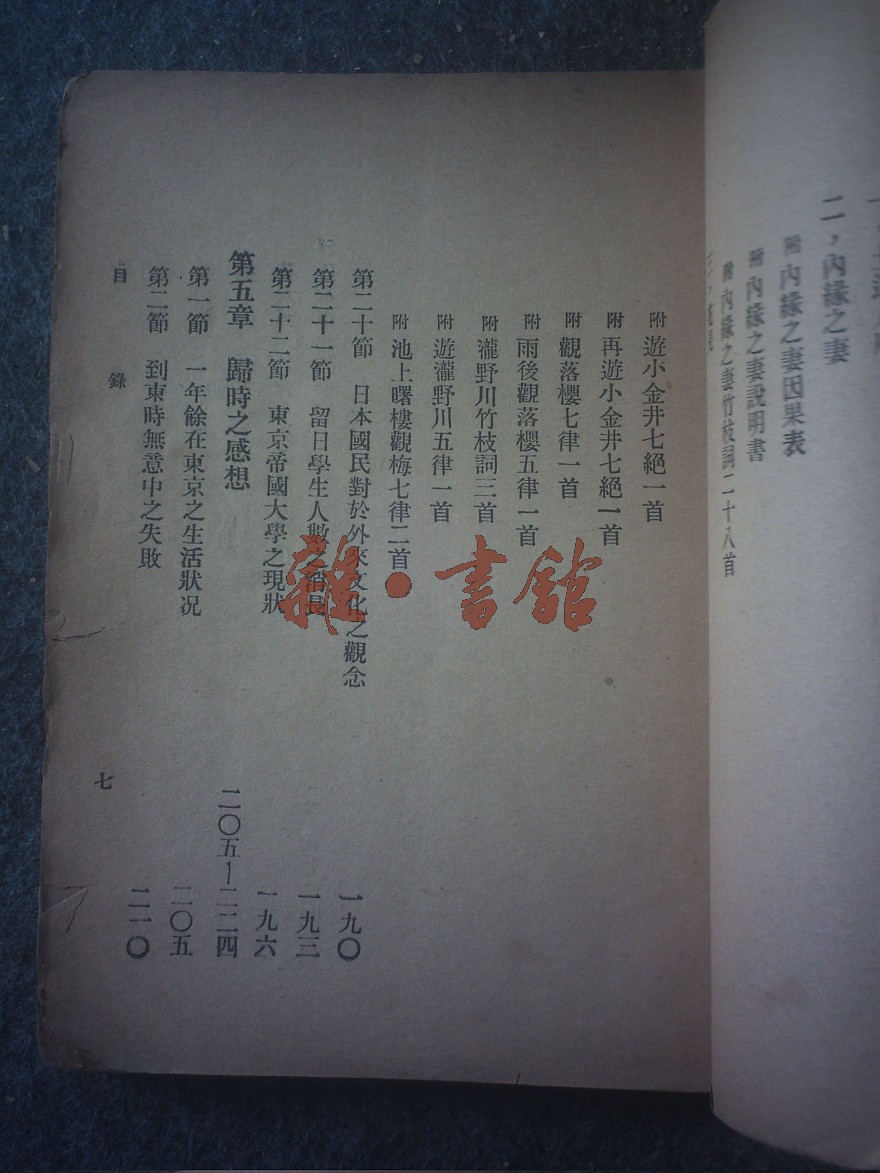 二，內緣之妻
附 內緣之妻因果表
附 內緣之妻說明書
附 內緣之妻竹枝詞二十八首
附 遊小金井七絕一首
附 再遊小金井七絕一首
附 觀落櫻七律一首
附 雨後觀落櫻五律一首
附 瀧野川竹枝詞三首
附 遊瀧野川五律一首
附 池上曙樓觀梅七律二首
第二十節 日本國民對於外來文化之觀念 一九〇
第二十一節 留日學生人數之消長 一九三
第二十二節 東京帝國大學之現狀 一九六
第五章 歸時之感想 二〇五—二二四
第一節 一年餘在東京之生活狀況 二〇五
第二節 到東時無意中之失敗 二一〇
目錄 七
雜·書館